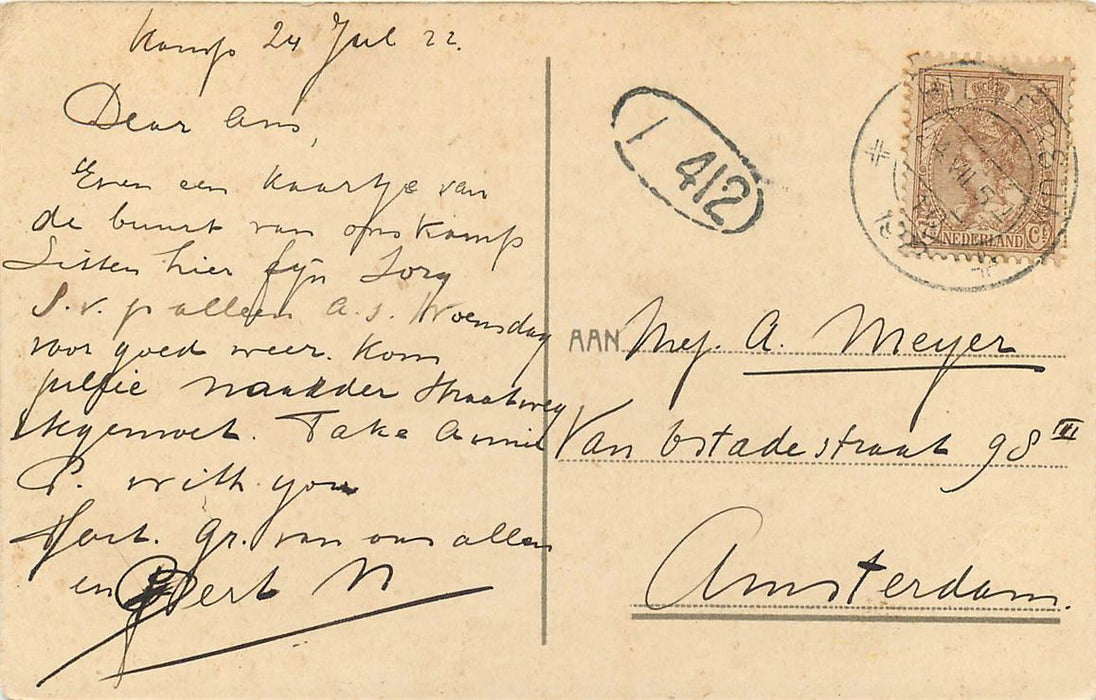 Kamp 24 Jul 22.
Dear Ans,
Even een kaartje van
de buurt van ons kamp
Sitten hier fijn Zorg
S.v.p alleen a.s. Woensdag
voor goed weer. Kom
jullie naarder Straatweg
tegemoet. Take Annie
P. with you
Hart. Gr. van ons allen
en Bert N
1 412
HILVERSUM
NEDERLAND Ct
AAN Mej. A. Meyer
Van Ostadestraat 98 III
Amsterdam.